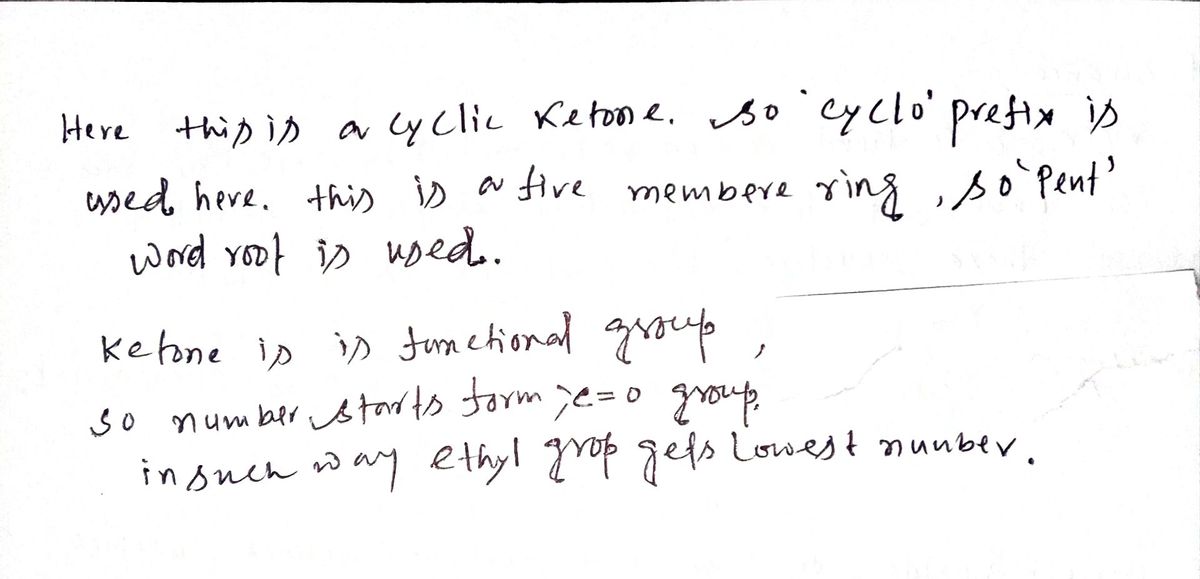 Here this is a cyclic Ketone. so 'cyclo' prefix is
used here. this is a five membere ring, so 'Pent'
word root is used.
Ketone is is functional group,
so number starts form >c=o group.
in such way ethyl grop gets Lowest nunber.